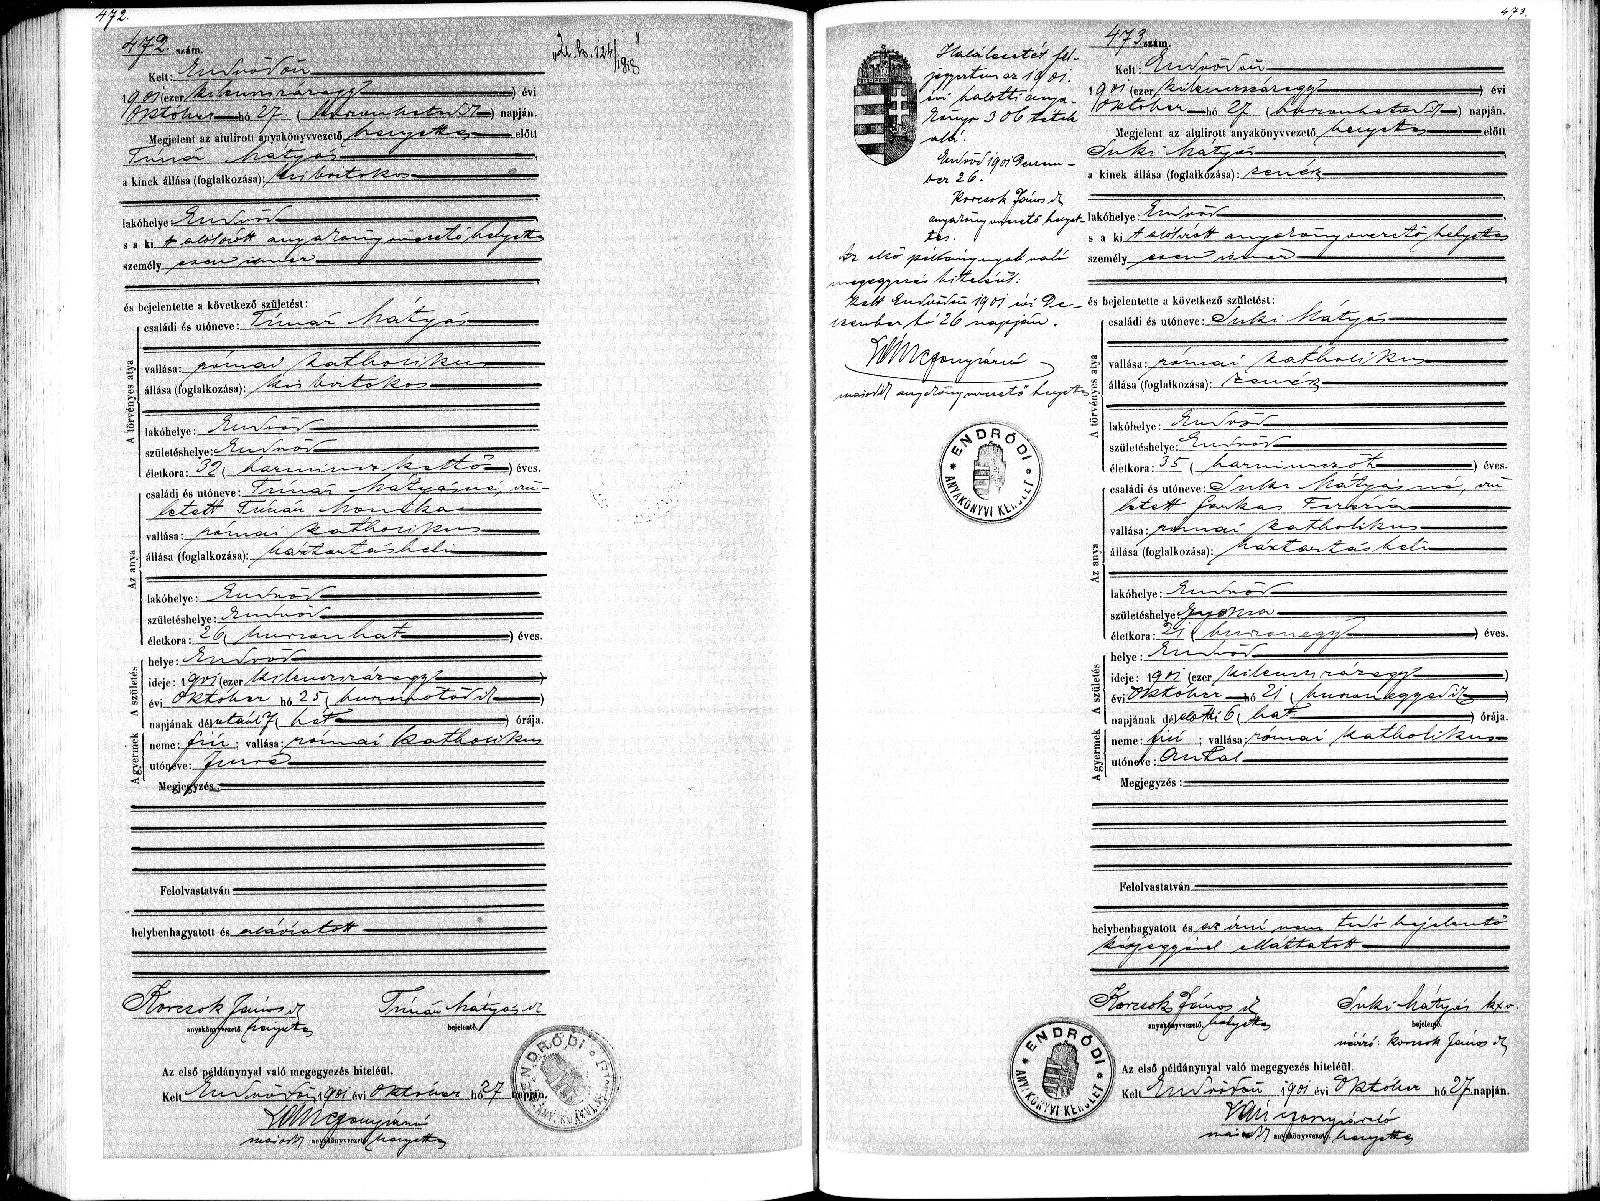 472.
472 szám.
Kelt: Endrődön
1901 (ezer kilenczszázegy) évi
Október hó 27 (huszonhetedik) napján.
Megjelent az alulirott anyakönyvvezető helyettes előtt
Timár Mátyás
a kinek állása (foglalkozása): kisbirtokos
lakóhelye: Endrőd
s a kit alólirott anyakönyvvezető helyettes
személyesen ismer
és bejelentette a következő születést:
A törvényes atya
családi és utóneve: Timár Mátyás
vallása: római katholikus
állása (foglalkozása): kisbirtokos
lakóhelye: Endrőd
születéshelye: Endrőd
életkora: 32 (harminczkettő) éves.
Az anya
családi és utóneve: Timár Mátyásné, szü-
letett Timár Mónika
vallása: római katholikus
állása (foglalkozása): háztartásbeli
lakóhelye: Endrőd
születéshelye: Endrőd
életkora: 26 (huszonhat) éves.
A születés
helye: Endrőd
ideje: 1901 (ezer kilenczszázegy)
évi Október hó 25 (huszonötödik)
napjának délután 7 (hét) órája.
A gyermek
neme: fiú; vallása: római katholikus
utóneve: Imre
Megjegyzés:
Felolvastatván
helybenhagyatott és aláíratott
Korcsok János s.k.
anyakönyvvezető helyettes
Timár Mátyás s.k.
bejelentő.
Az első példánynyal való megegyezés hiteléül.
Kelt Endrődön, 1901 évi Október hó 27 napján.
másodk anyakönyvvezető helyettes
473.
Halálesetét fel-
jegyeztem az 1901.
évi halotti anya-
könyv 306 tétele
alá.
Endrőd 1901 Decem-
ber 26.
Korcsok János s.k.
anyakönyvvezető helyet-
tes.
Az első példánynyal való
megegyezés hiteléül:
Kelt Endrődön 1901 évi De-
czember hó 26 napján.
másodk anyakönyvvezető helyettes
ENDRŐDI
ANYAKÖNYVI KERÜLET
473 szám.
Kelt: Endrődön
1901 (ezer kilenczszázegy) évi
Október hó 27 (huszonhetedik) napján.
Megjelent az alulirott anyakönyvvezető helyettes előtt
Suki Mátyás
a kinek állása (foglalkozása): zenész
lakóhelye: Endrőd
s a kit alólirott anyakönyvvezető helyettes
személyesen ismer
és bejelentette a következő születést:
A törvényes atya
családi és utóneve: Suki Mátyás
vallása: római katholikus
állása (foglalkozása): zenész
lakóhelye: Endrőd
születéshelye: Endrőd
életkora: 35 (harminczöt) éves.
Az anya
családi és utóneve: Suki Mátyásné, szü-
letett Farkas Terézia
vallása: római katholikus
állása (foglalkozása): háztartásbeli
lakóhelye: Endrőd
születéshelye: Gyoma
életkora: 21 (huszonegy) éves.
A születés
helye: Endrőd
ideje: 1901 (ezer kilenczszázegy)
évi Október hó 21 (huszonegyedik)
napjának délelőtti 6 (hat) órája.
A gyermek
neme: fiú; vallása: római katholikus
utóneve: Antal
Megjegyzés:
Felolvastatván
helybenhagyatott és az írni nem tudó bejelentő
kézjegyével elláttatott
Korcsok János s.k.
anyakönyvvezető. helyettes
Suki Mátyás kxv.
bejelentő.
névíró: Korcsok János s.k.
ENDRŐDI
ANYAKÖNYVI KERÜLET
Az első példánynyal való megegyezés hiteléül.
Kelt Endrődön, 1901 évi Október hó 27 napján.
másodk anyakönyvvezető. helyettes